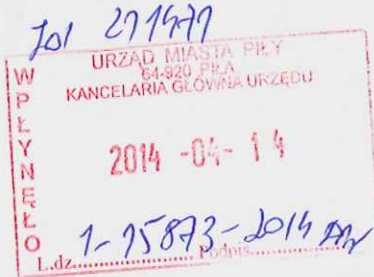 271477
URZĄD MIASTA PIŁY
64-920 PIŁA
KANCELARIA GŁÓWNA URZĘDU
WPŁYNĘŁO
2014 -04- 14
L.dz. 1-15873-2014 Podpis